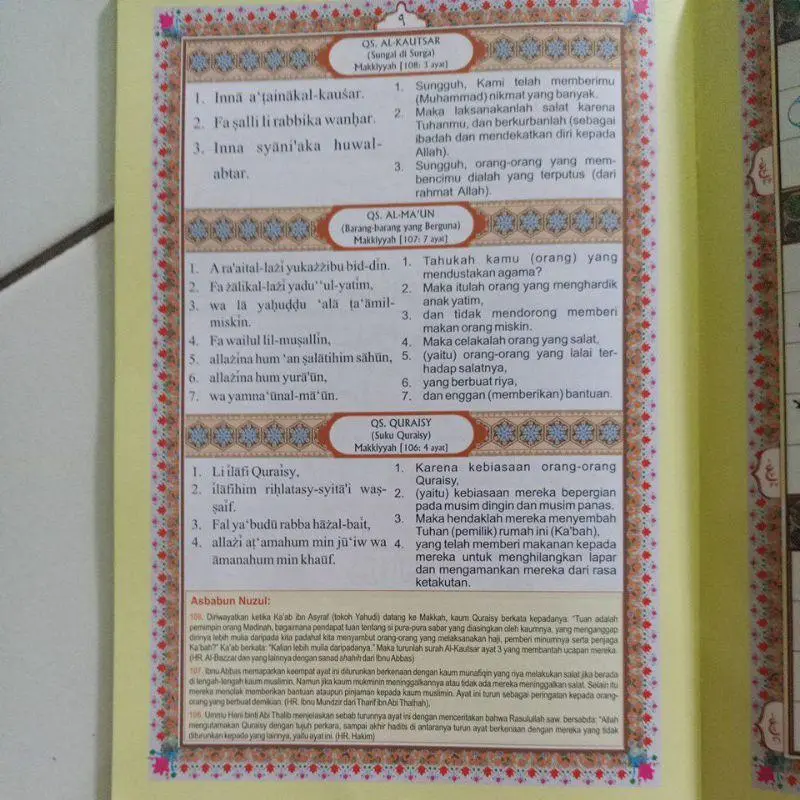 ٩
QS. AL-KAUTSAR
(Sungai di Surga)
Makkiyyah [108: 3 ayat]
1. Innā a‘ṭainākal-kauṡar.
2. Fa ṣalli li rabbika wanḥar.
3. Inna syāni'aka huwal-
abtar.
1. Sungguh, Kami telah memberimu
(Muhammad) nikmat yang banyak.
2. Maka laksanakanlah salat karena
Tuhanmu, dan berkurbanlah (sebagai
ibadah dan mendekatkan diri kepada
Allah).
3. Sungguh, orang-orang yang mem-
bencimu dialah yang terputus (dari
rahmat Allah).
QS. AL-MA'UN
(Barang-barang yang Berguna)
Makkiyyah [107: 7 ayat]
1. A ra'aital-lażī yukażżibu bid-dīn.
2. Fa żālikal-lażī yadu‘‘ul-yatīm,
3. wa lā yaḥuḍḍu ‘alā ṭa‘āmil-
miskīn.
4. Fa wailul lil-muṣallīn,
5. allażīna hum ‘an ṣalātihim sāhūn,
6. allażīna hum yurā'ūn,
7. wa yamna‘ūnal-mā‘ūn.
1. Tahukah kamu (orang) yang
mendustakan agama?
2. Maka itulah orang yang menghardik
anak yatim,
3. dan tidak mendorong memberi
makan orang miskin.
4. Maka celakalah orang yang salat,
5. (yaitu) orang-orang yang lalai ter-
hadap salatnya,
6. yang berbuat riya,
7. dan enggan (memberikan) bantuan.
QS. QURAISY
(Suku Quraisy)
Makkiyyah [106: 4 ayat]
1. Li īlāfi Quraīsy,
2. īlāfihim riḥlatasy-syitā'i waṣ-
ṣaīf.
3. Fal ya‘budū rabba hāżal-baīt,
4. allażī aṭ‘amahum min jū‘iw wa
āmanahum min khaūf.
1. Karena kebiasaan orang-orang
Quraisy,
2. (yaitu) kebiasaan mereka bepergian
pada musim dingin dan musim panas.
3. Maka hendaklah mereka menyembah
Tuhan (pemilik) rumah ini (Ka'bah),
4. yang telah memberi makanan kepada
mereka untuk menghilangkan lapar
dan mengamankan mereka dari rasa
ketakutan.
Asbabun Nuzul:
108. Diriwayatkan ketika Ka'ab ibn Asyraf (tokoh Yahudi) datang ke Makkah, kaum Quraisy berkata kepadanya: "Tuan adalah
pemimpin orang Madinah, bagaimana pendapat tuan tentang si pura-pura sabar yang diasingkan oleh kaumnya, yang menganggap
dirinya lebih mulia daripada kita padahal kita menyambut orang-orang yang melaksanakan haji, pemberi minumnya serta penjaga
Ka'bah?" Ka'ab berkata: "Kalian lebih mulia daripadanya." Maka turunlah surah Al-Kautsar ayat 3 yang membantah ucapan mereka.
(HR. Al-Bazzar dan yang lainnya dengan sanad shahih dari Ibnu Abbas)
107. Ibnu Abbas memaparkan keempat ayat ini diturunkan berkenaan dengan kaum munafiqin yang riya melakukan salat jika berada
di tengah-tengah kaum muslimin. Namun jika kaum mukminin meninggalkannya atau tidak ada mereka meninggalkan salat. Selain itu
mereka menolak memberikan bantuan ataupun pinjaman kepada kaum muslimin. Ayat ini turun sebagai peringatan kepada orang-
orang yang berbuat demikian. (HR. Ibnu Mundzir dari Tharif ibn Abi Thalhah).
106. Ummu Hani binti Abi Thalib menjelaskan sebab turunnya ayat ini dengan menceritakan bahwa Rasulullah saw. bersabda: "Allah
mengutamakan Quraisy dengan tujuh perkara, sampai akhir hadits di antaranya turun ayat berkenaan dengan mereka yang tidak
diturunkan kepada yang lainnya, yaitu ayat ini. (HR. Hakim)